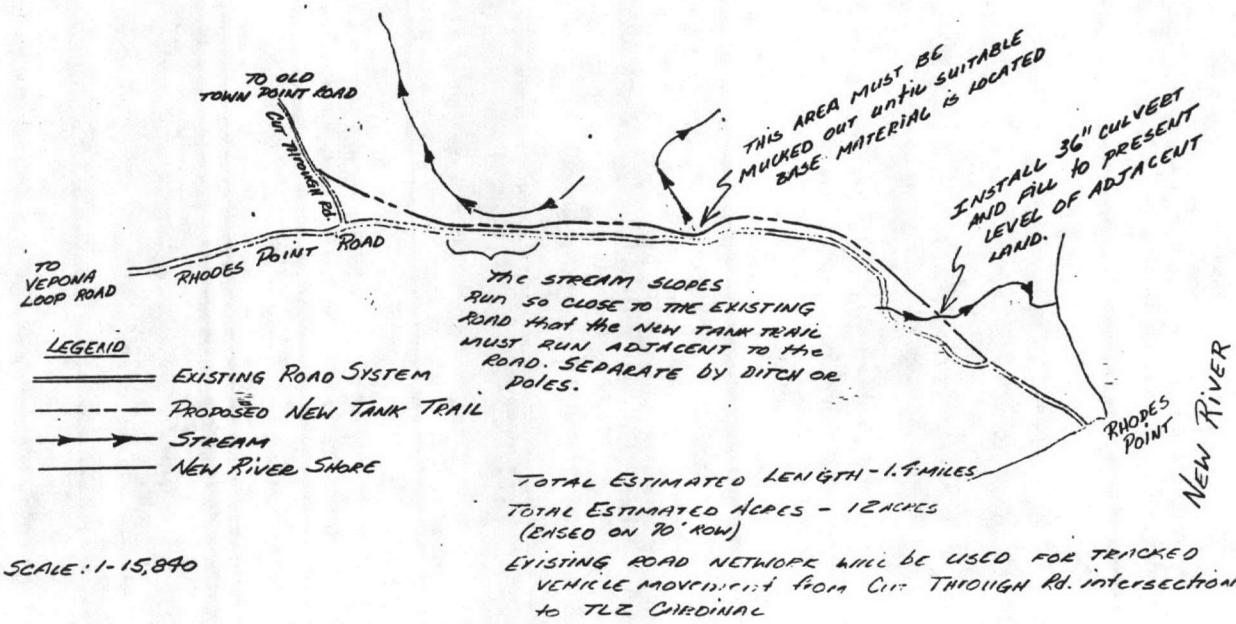 TO OLD
TOWN POINT ROAD
CUT THROUGH Rd.
THIS AREA MUST BE
MUCKED OUT UNTIL SUITABLE
BASE MATERIAL IS LOCATED
INSTALL 36" CULVERT
AND FILL to PRESENT
LEVEL OF ADJACENT
LAND.
TO
VERONA
LOOP ROAD
RHODES POINT ROAD
THE STREAM SLOPES
RUN SO CLOSE TO THE EXISTING
ROAD that the NEW TANK TRAIL
MUST RUN ADJACENT TO the
ROAD. SEPARATE BY DITCH OR
POLES.
LEGEND
EXISTING ROAD SYSTEM
PROPOSED NEW TANK TRAIL
STREAM
NEW RIVER SHORE
RHODES
POINT
NEW RIVER
TOTAL ESTIMATED LENGTH - MILES
TOTAL ESTIMATED ACRES - 12 ACRES
(BASED ON ROW)
SCALE: 1-15,840
EXISTING ROAD NETWORK WILL BE USED FOR TRACKED
VEHICLE MOVEMENT from CUT THROUGH Rd. intersection
to TLZ CARDINAL